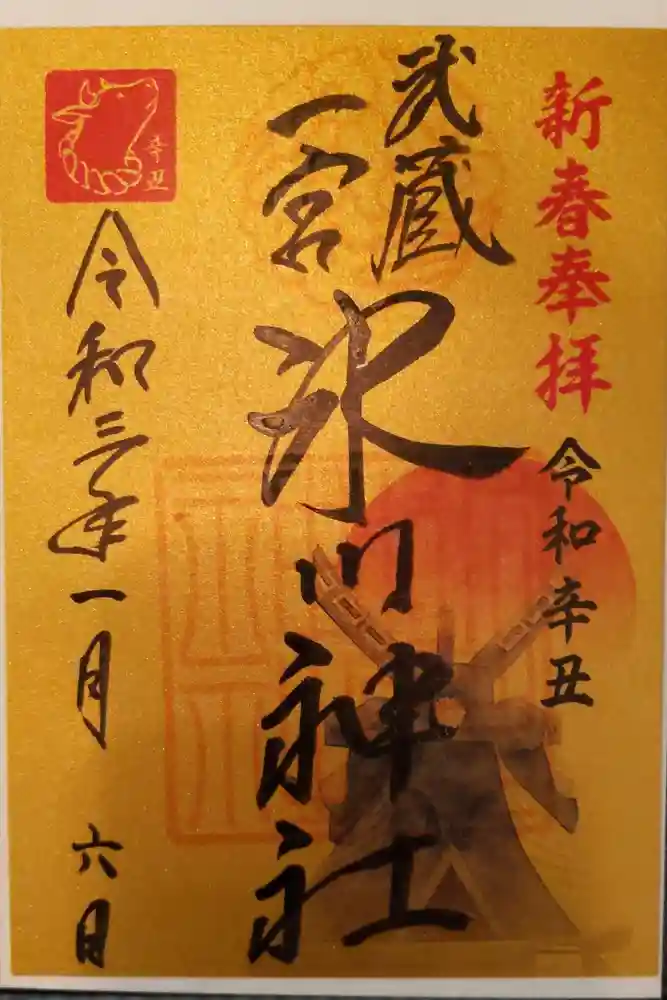 新春奉拝
令和辛丑
武蔵
一宮
氷川神社
辛丑
令和三年一月 六日